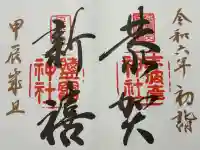 令和六年初詣
恭賀
新禧
甲辰歳旦
神社
神社